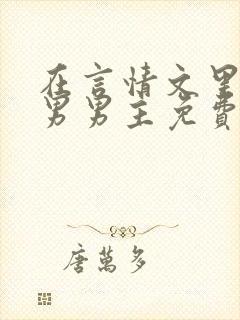 在言情文里
男男主免費
唐萬多